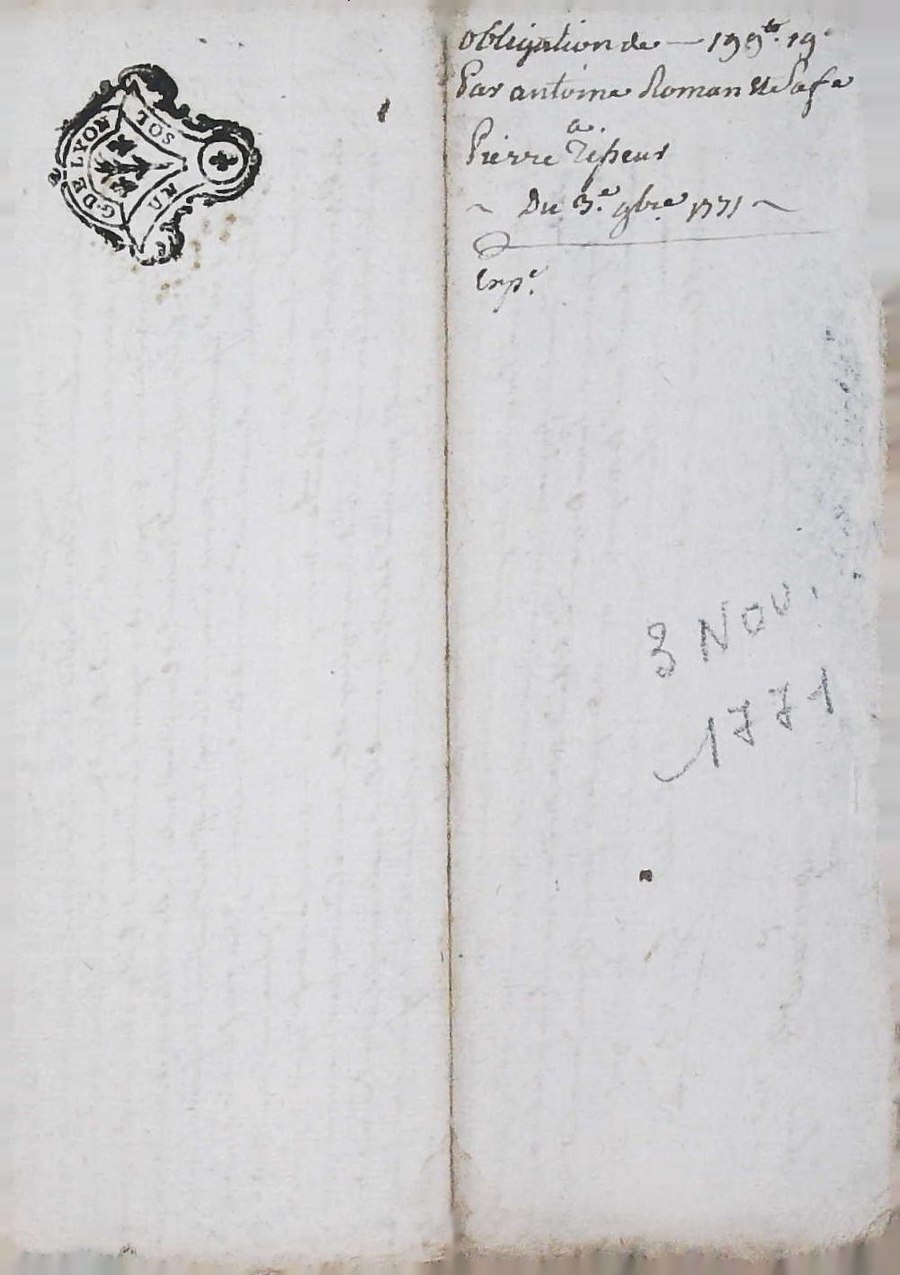 G. DE LYON
UN SOL
obligation de — 199tt. 19s
Par antoine Roman et Safe
a.
Pierre Tisseur
~ Du 3.e 9bre 1771 ~
Exp.e
3 Nov.
1771